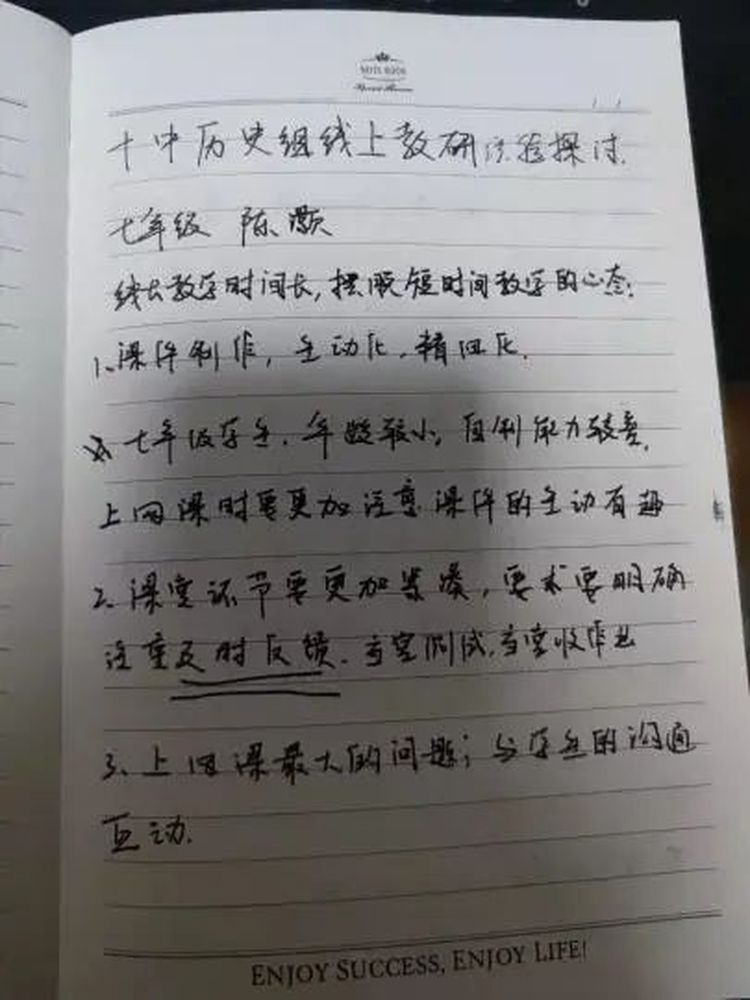 NOTE BOOK
十中历史组线上教研活动探讨.
七年级 陈灏
线长教学时间长,摆脱短时间教学的心态:
1、课件制作,生动化,精细化.
七年级学生.年龄较小,自制能力较差.
上网课时要更加注意课件的生动有趣
2、课堂环节要更加紧凑,要求要明确
注重及时反馈.当堂测试,当堂收作业
3、上网课最大的问题;与学生的沟通
互动.
ENJOY SUCCESS, ENJOY LIFE!